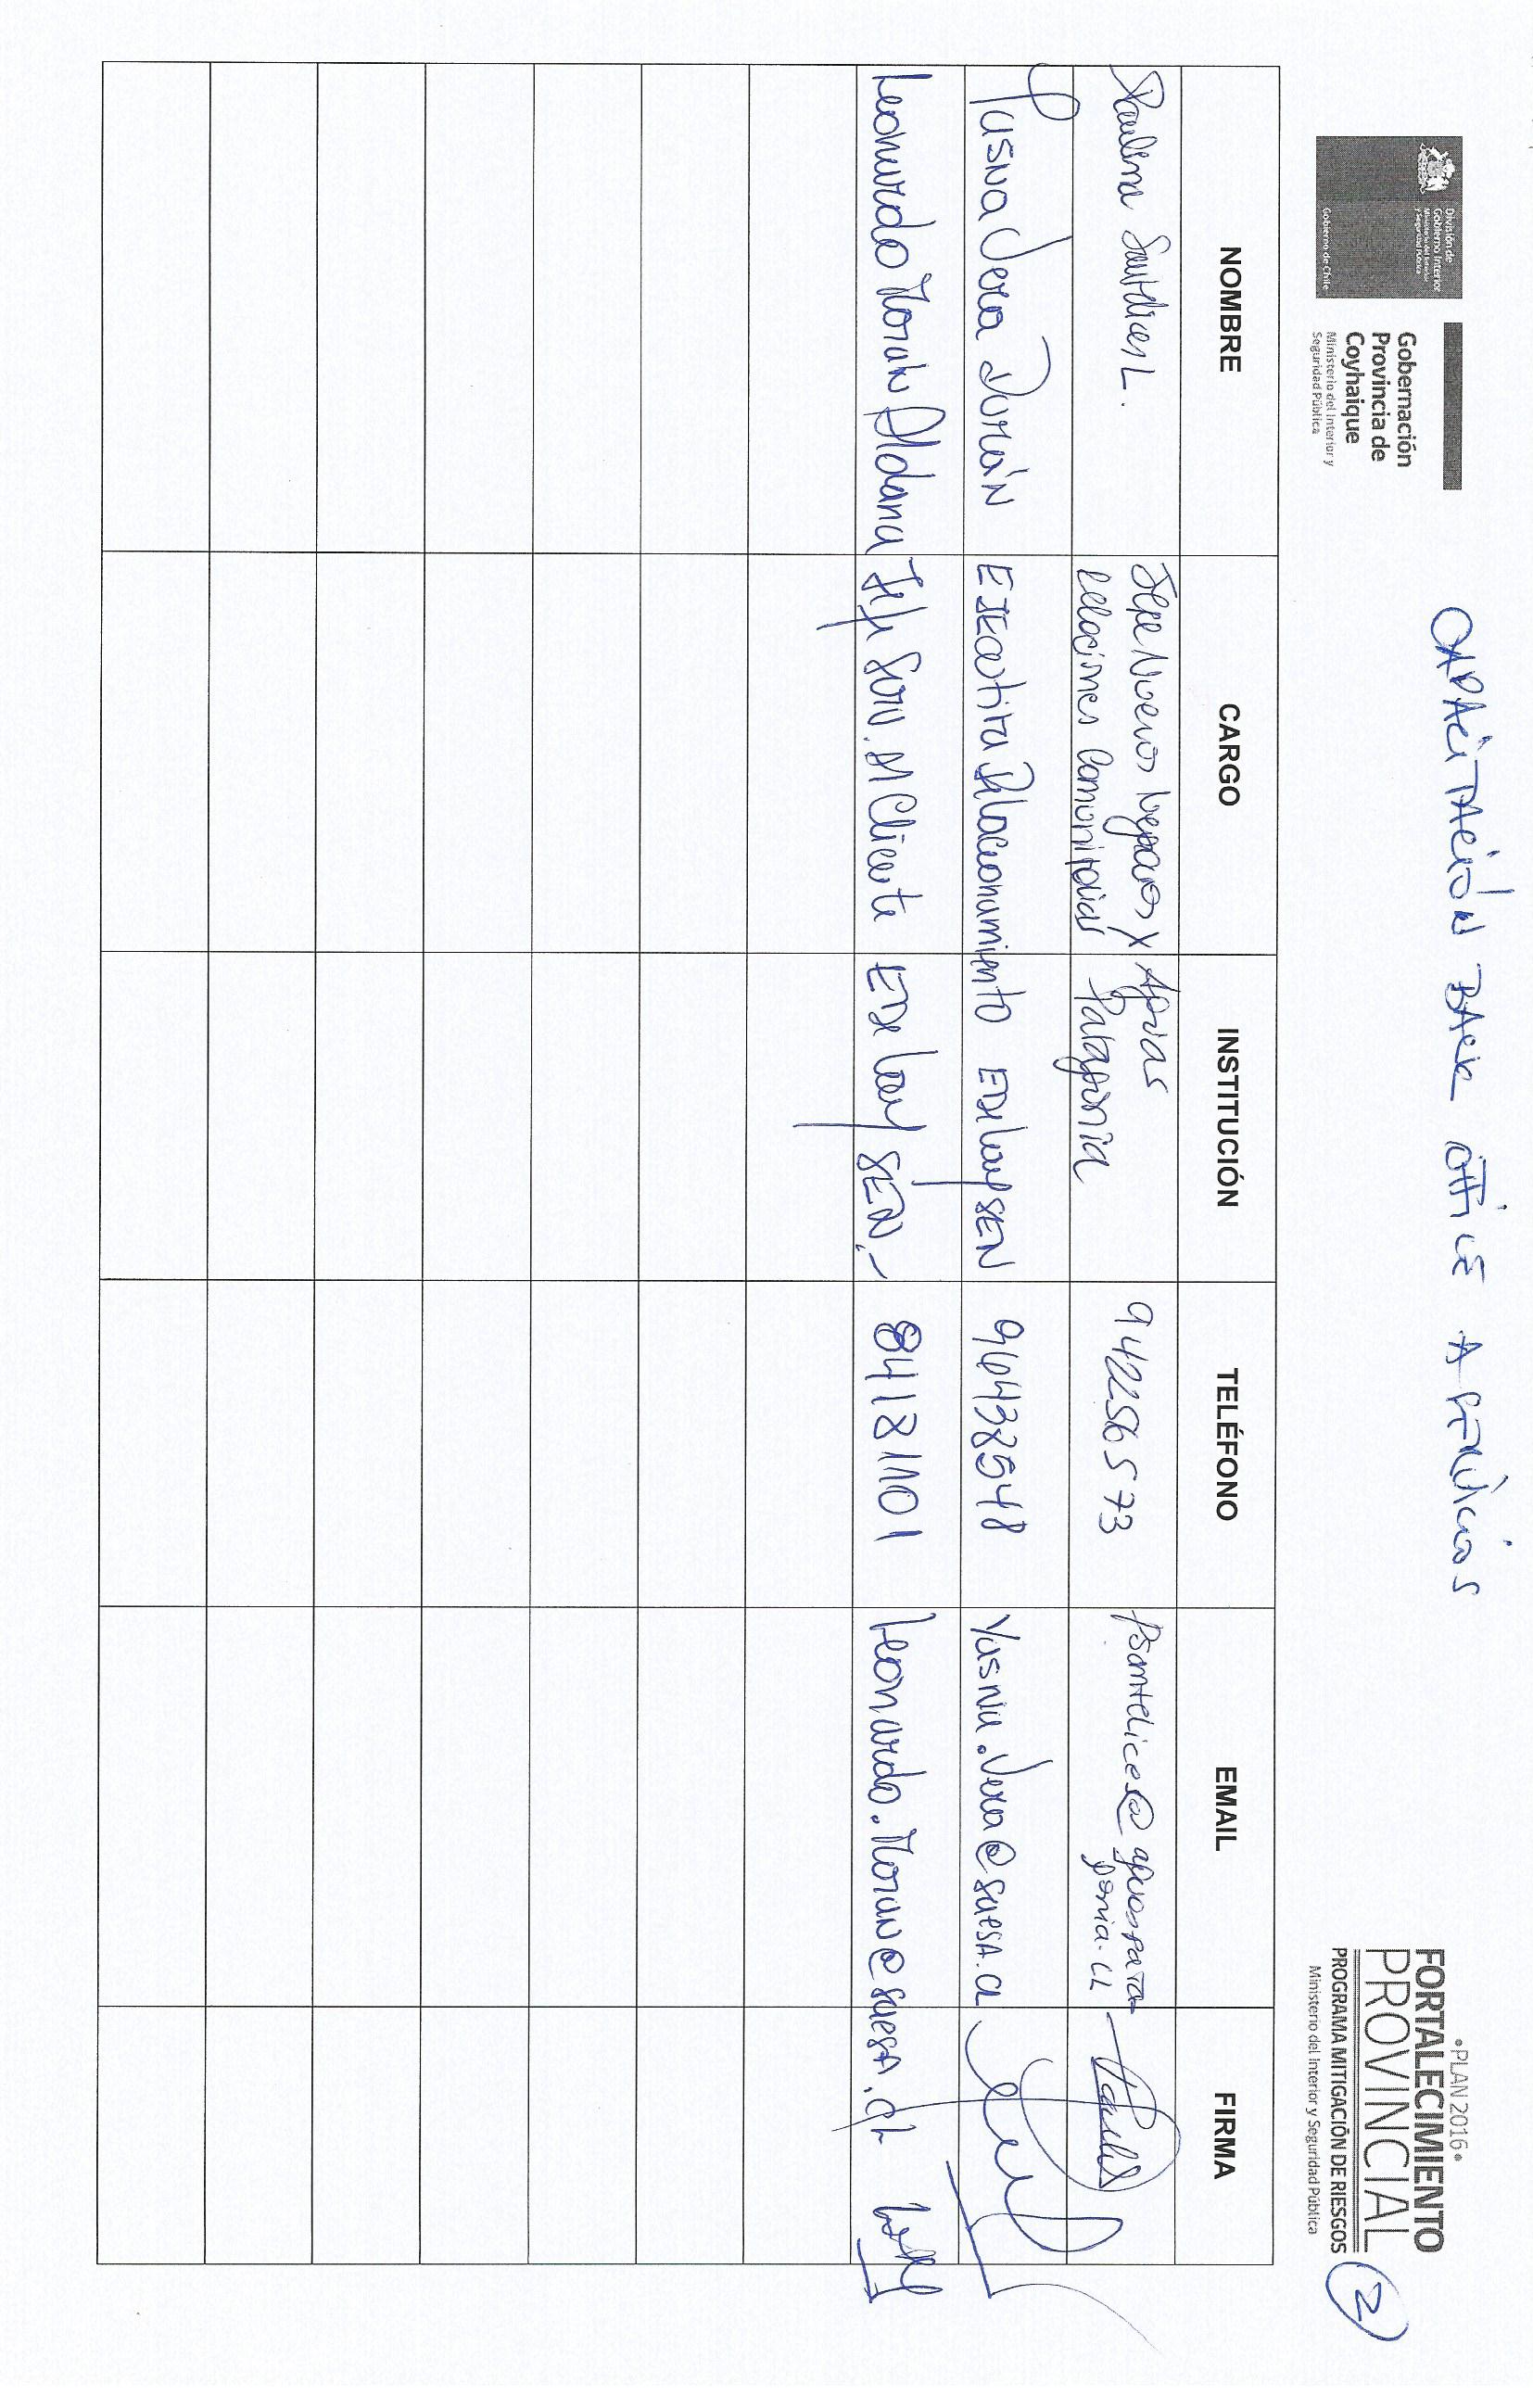 CAPACITACIÓN BACK OFFICE A SERVICIOS
División de
Gobierno Interior
Ministerio del Interior
y Seguridad Pública
Gobierno de Chile
Gobernación
Provincia de
Coyhaique
Ministerio del Interior y
Seguridad Pública
•PLAN 2016•
FORTALECIMIENTO
PROVINCIAL
PROGRAMA MITIGACIÓN DE RIESGOS
Ministerio del Interior y Seguridad Pública
2
NOMBRE CARGO INSTITUCIÓN TELÉFONO EMAIL FIRMA
Paulina Santelices L. Jefe Nuevos Negocios y Relaciones Comunitarias Aguas Patagonia 942256573 psantelices@aguaspatagonia.cl
Yasna Vera Durán EJEcutiva Relacionamiento EDElaySEN 96438548 Yasna.Vera@saesa.cl
Leonardo Moran Aldana Jefe Serv. Al Cliente EDElaySEN.- 84181101 Leonardo.Moran@saesa.cL